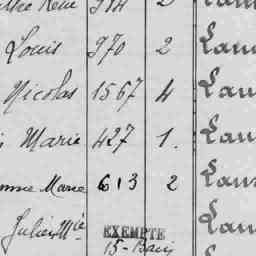 René 984 2
Louis 970 2
Nicolas 1567 4 Lau
Marie 427 1. Lau
nne Marie 613 2 Lau
Julien Mie Lau
EXEMPTE
15-Bais